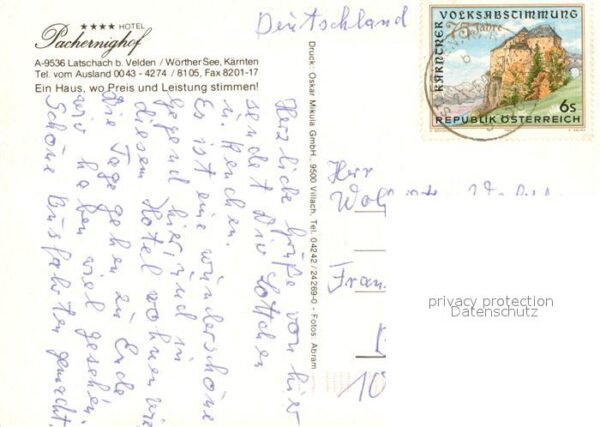 ★★★★ HOTEL
Pachernighof
A-9536 Latschach b. Velden / Wörther See, Kärnten
Tel. vom Ausland 0043 - 4274 / 8105, Fax 8201-17
Ein Haus, wo Preis und Leistung stimmen!
Deutschland
KÄRNTNER VOLKSABSTIMMUNG
75 Jahre
6s
REPUBLIK ÖSTERREICH
Herzliche Grüße von hier
sendet Dir Lottchen
u.
Es ist eine wunderschöne
Gegend hier, und in
diesem Hotel wohnen wir
die Tage gehen zu Ende
wir haben viel gesehen
Schöne Busfahrten gemacht.
Druck: Oskar Mikula GmbH., 9500 Villach, Tel. 04242 / 24269-0 - Fotos: Abram
Herr
privacy protection
Datenschutz